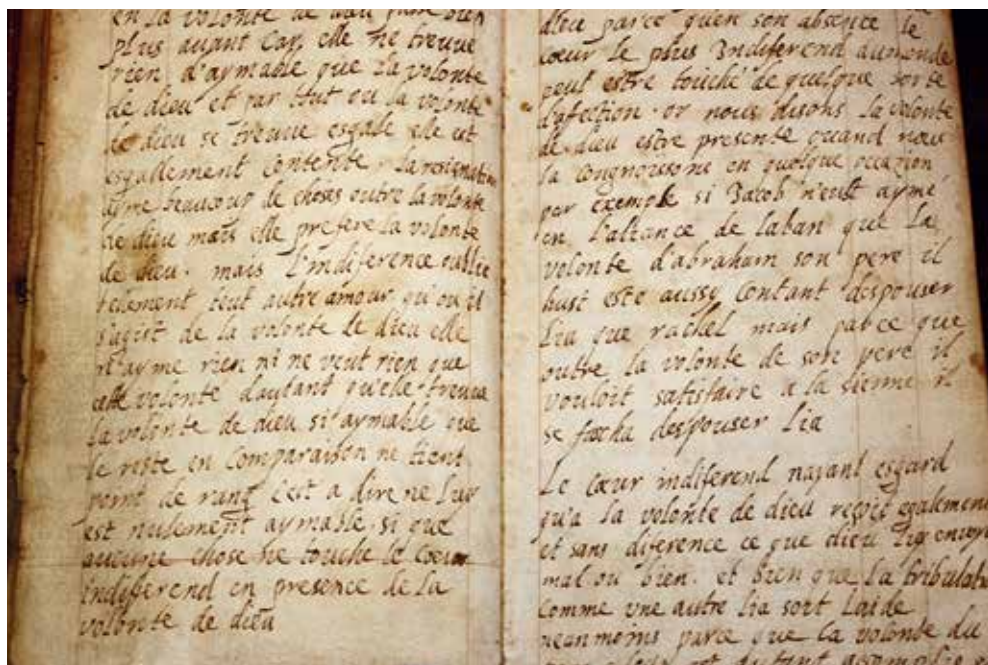 en la volonte de dieu
plus avant Car, elle ne treuve
rien d'aymable que la volonte
de dieu et par tout ou la volonte
de dieu se treuve esgale elle est
esgallement contente. la resignation
ayme beaucoup de choses outre la volonte
de dieu mais elle prefere la volonte
de dieu. mais l'indiference oublie
telement tout autre amour qu'ou il
s'agist de la volonte de dieu elle
n'ayme rien ni ne veut rien que
cette volonte dautant qu'elle treuve
la volonte de dieu si aymable que
le reste en Comparaison ne tient
point de rang C'est a dire ne luy
est nulement aymable. si que
aucune chose ne touche le Cœur
indiferend en presence de la
volonte de dieu
dieu parce quen son absence le
cœur le plus Indiferend au monde
peut estre touché de quelque sorte
d'afection. or nous disons la volonte
de dieu estre presente quand nous
la congnoisons en quelque occasion
par exemple si Jacob n'eust aymé
en l'aliance de laban que la
volonte d'abraham son pere il
hust este aussy Contant despouser
Lia que rachel mais parce que
outre la volonte de son pere il
vouloit satisfaire a la sienne il
se facha despouser Lia
Le Cœur indiferend nayant esgard
qu'a la volonte de dieu reçoit egalement
et sans diference ce que dieu luy envoye
mal ou bien. et bien que la tribulat
Comme une autre lia soit Laide
neanmoins parce que la volonte du